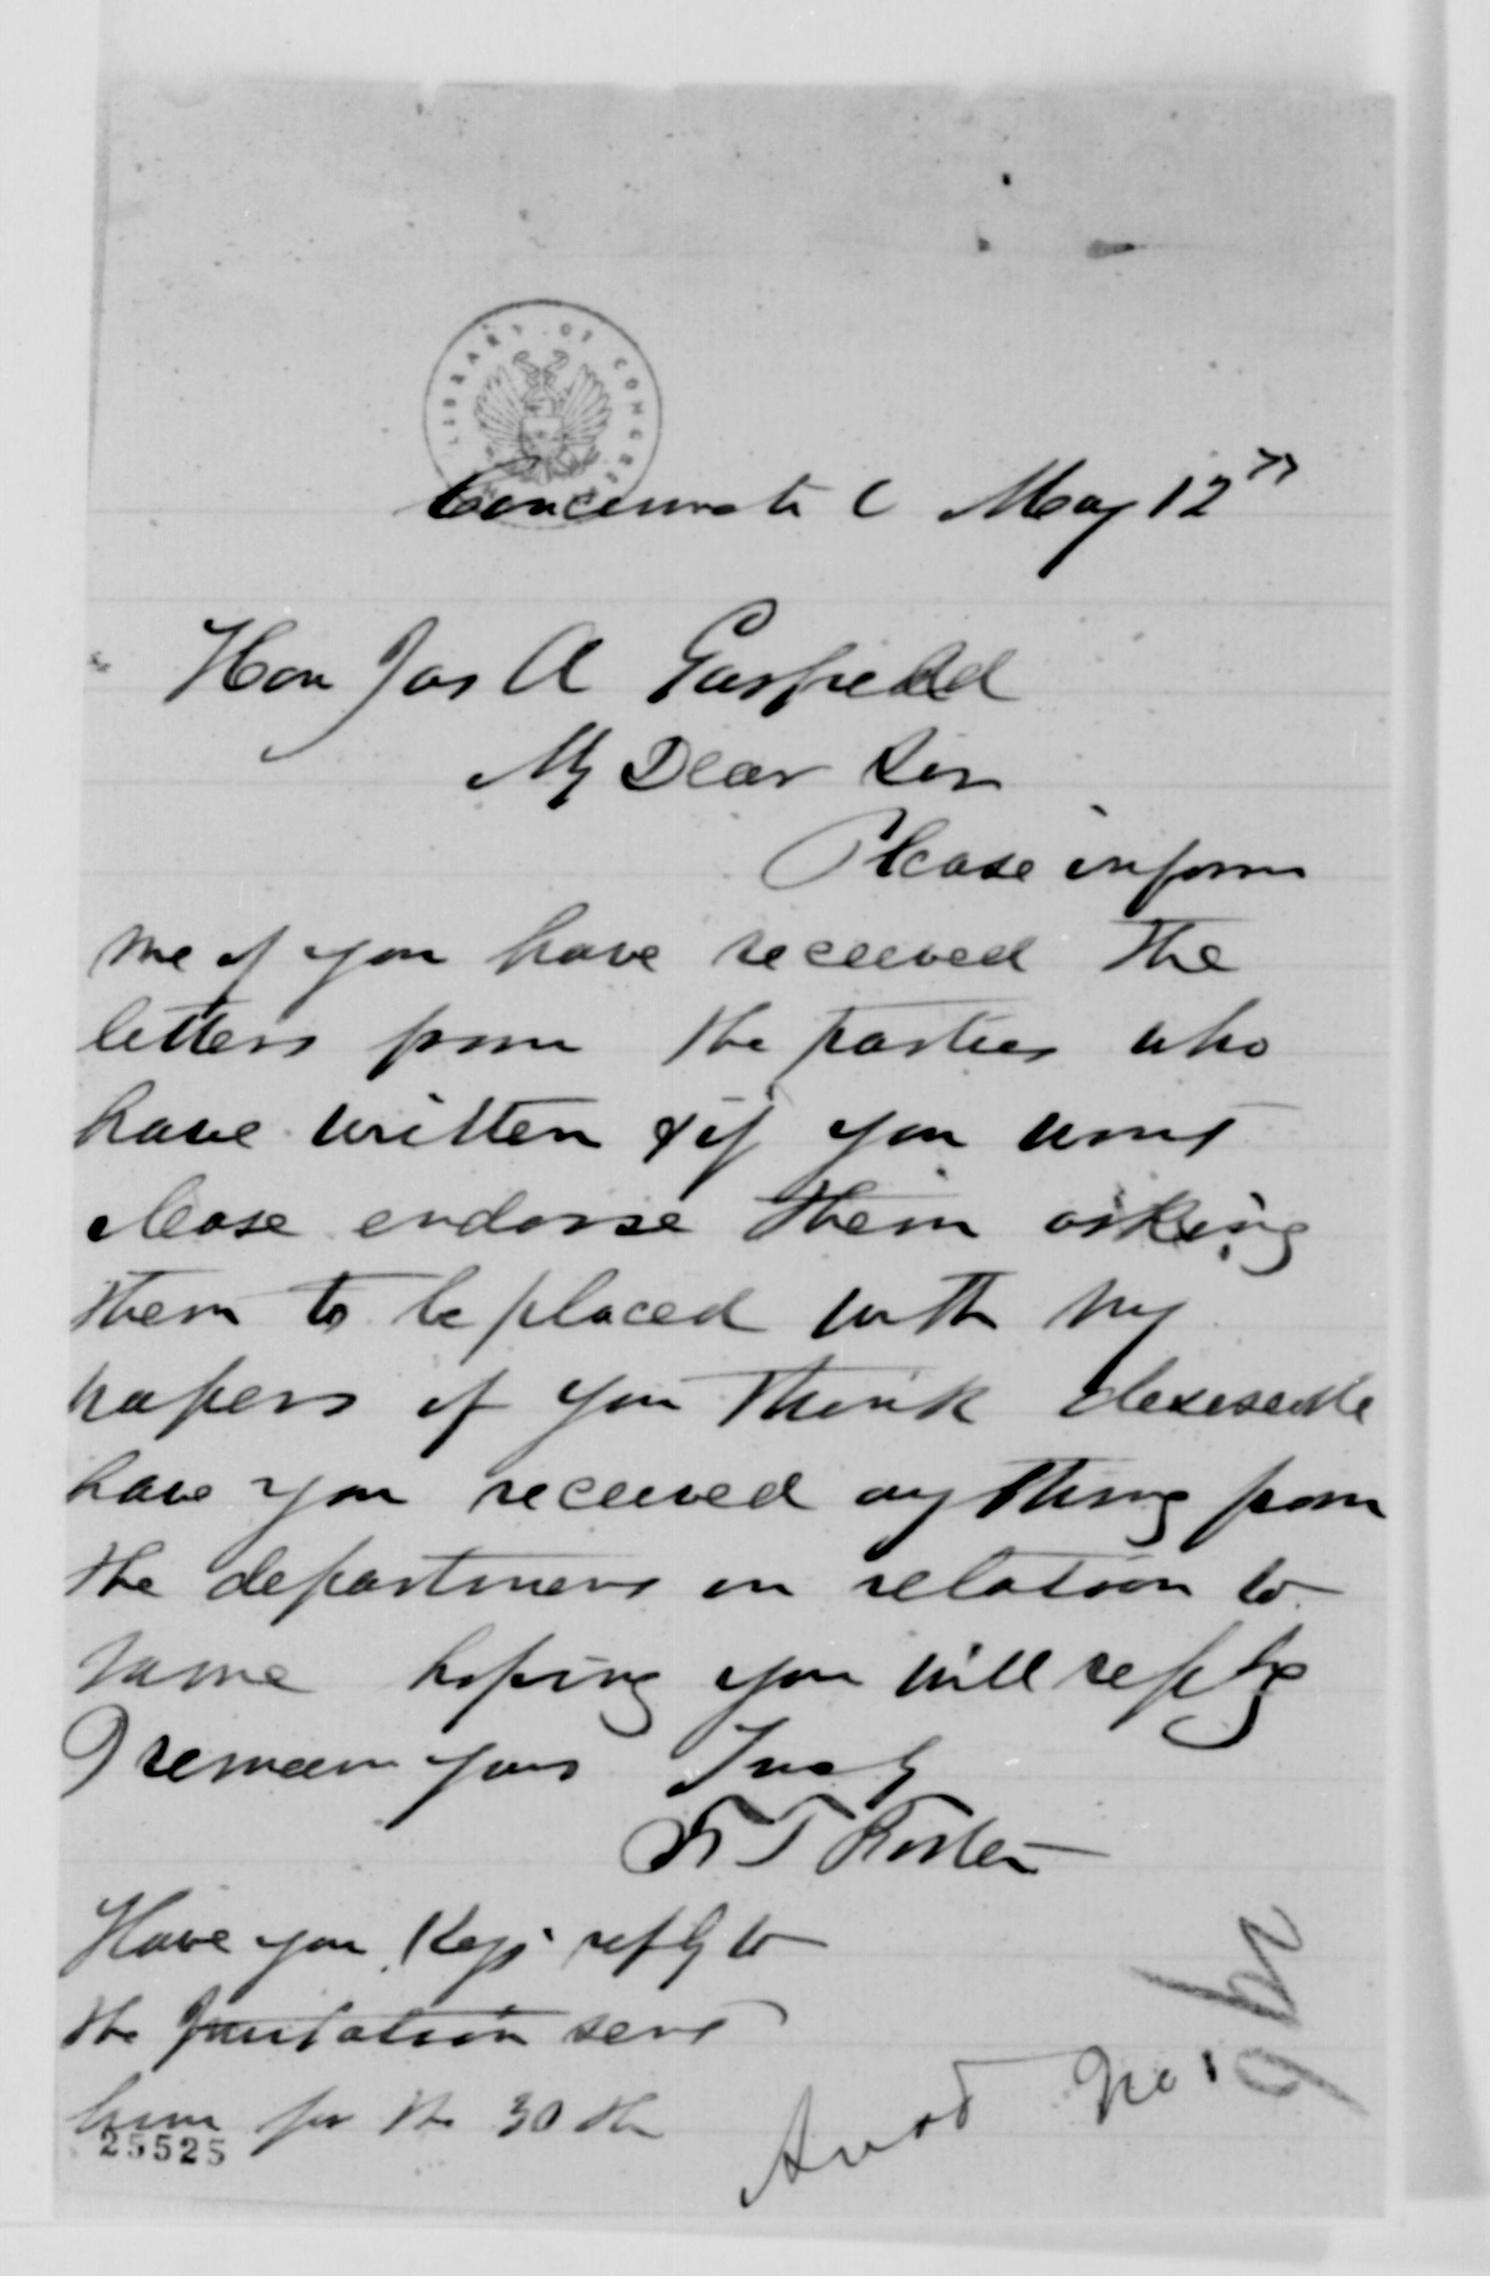 LIBRARY OF CONGRESS
Cincinnati O May 12"
Hon Jas A Garfield
My Dear Sir
Please inform
me if you have received the
letters from the parties who
have written & if you wont
please endorse them asking
them to be placed with my
papers if you think desireable
have you received any thing from
the department in relation to
same hoping you will reply
I remain yours Truly
T Foster
Have you Keys' reply to
the Invitation sent
him for the 30 th
25525
Ansd